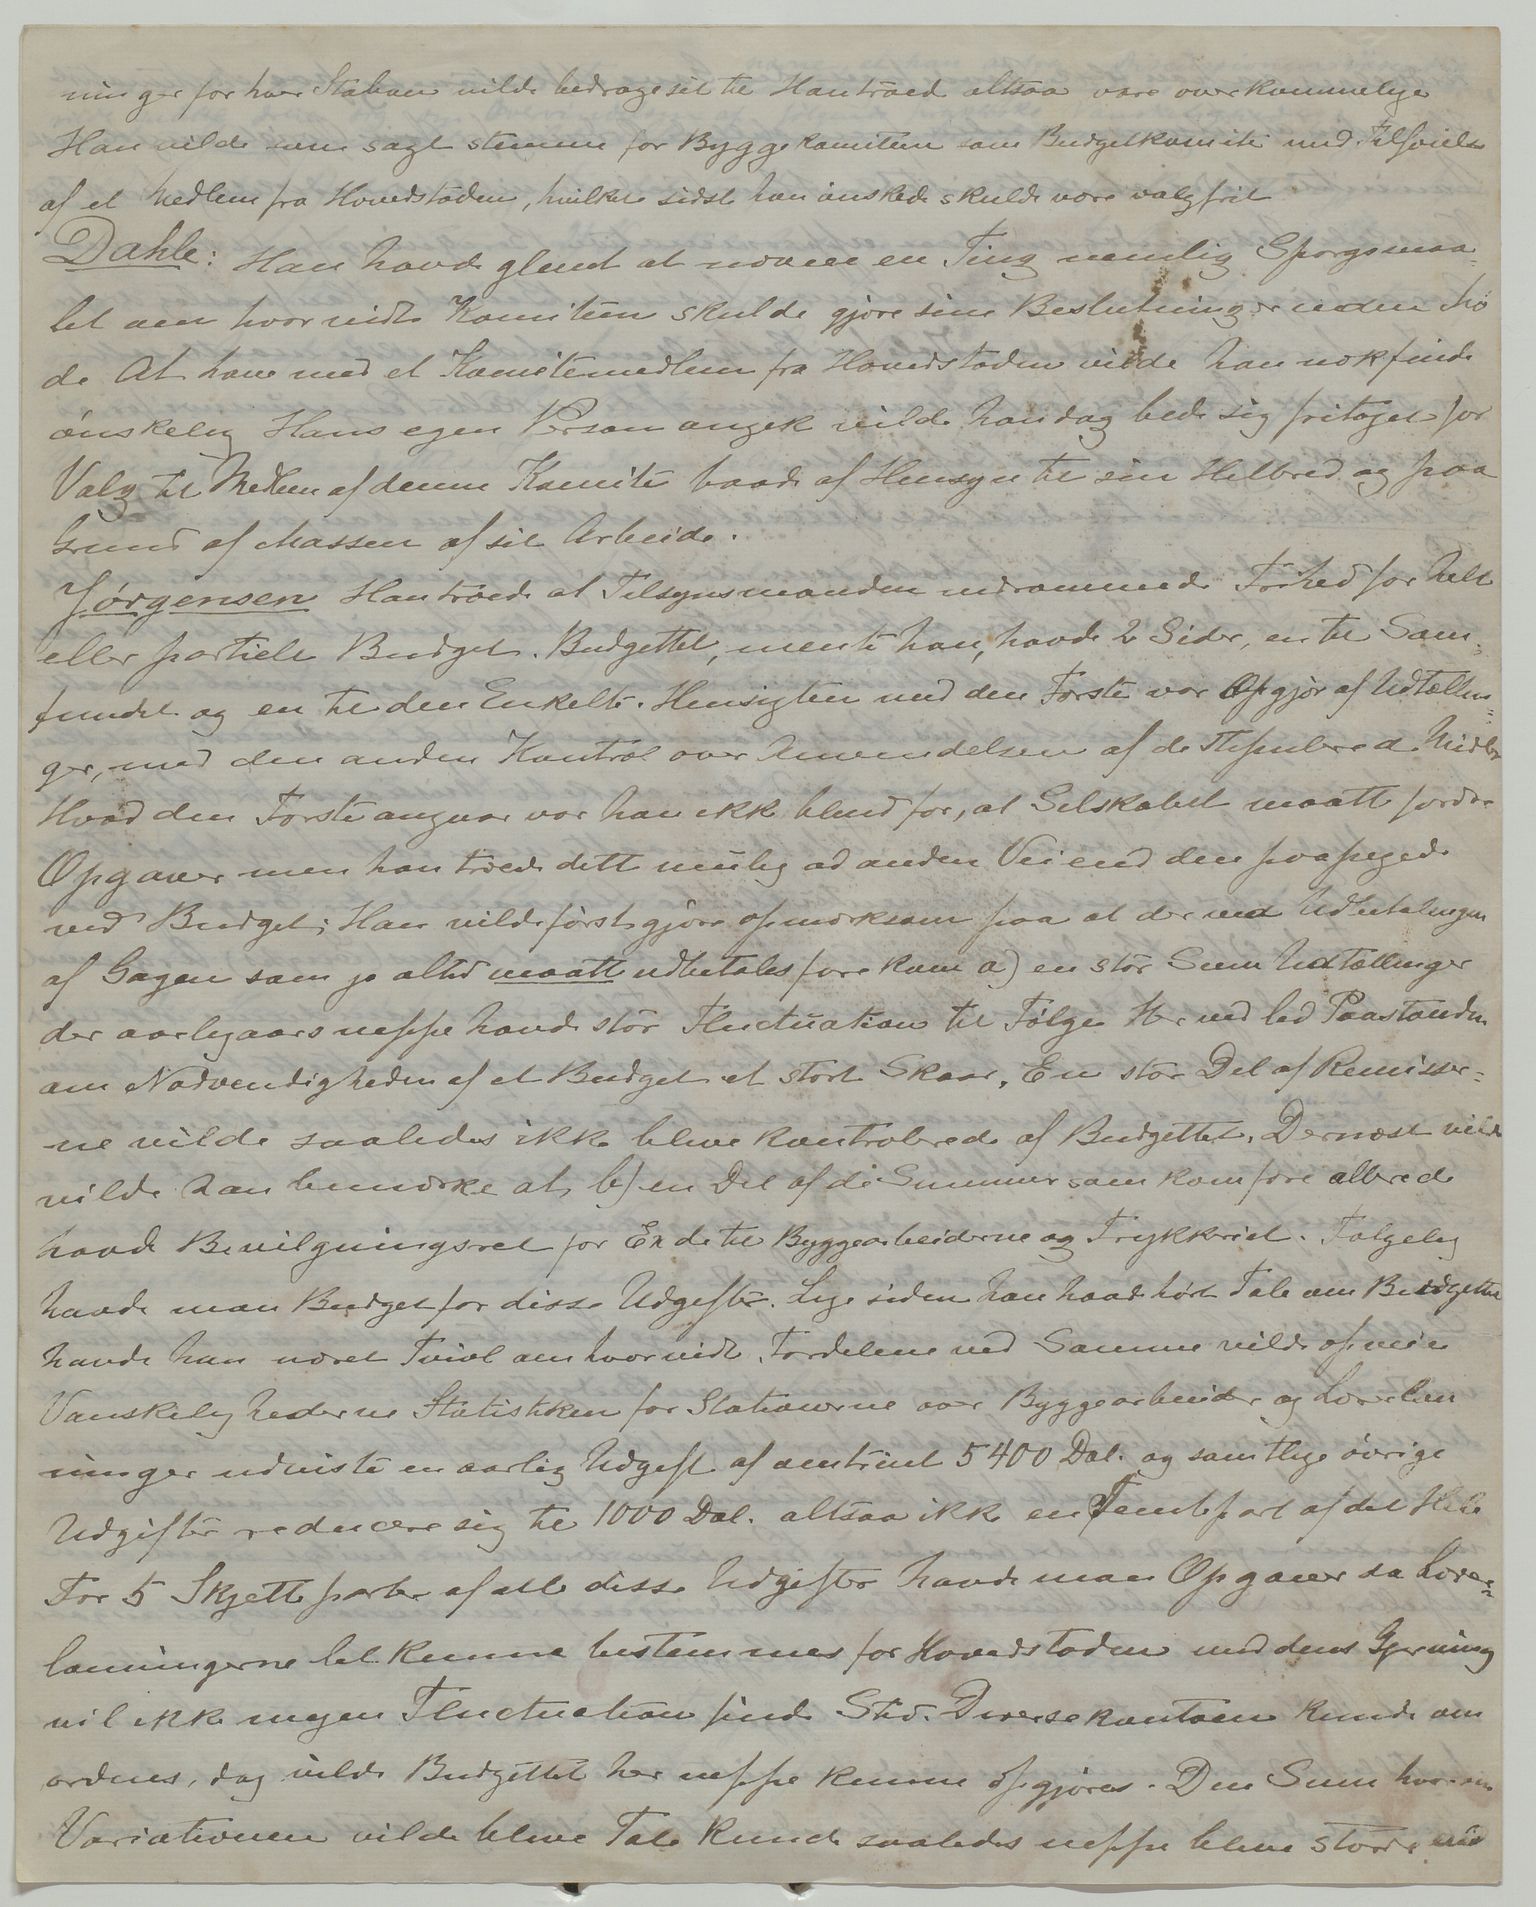 ninger for hver Station vilde bedrage sit til Han troed altsaa være overkommelige
Han vilde som sagt stemme for Byggekomiteen som Budgetkomite med Tilføielse
af et Medlem fra Hovedstaden, hvilket sidst han ønskede skulde være valgfrit
Dahle: Han havde glemt at nævne en Ting nemlig Spørgsmaa=
let om hvorvidt Komiteen skulde gjøre sine Beslutninger inden
de At have med et Komitemedlem fra Hovedstaden vilde han nok finde
ønskelig Hans egen Person angik vilde han dog bede sig fritaget for
Valg til Medlem af denne Komite baade af Hensyn til sin Helbred og paa
Grund af Massen af sit Arbeide.
Jørgensen Han troede at Tilsynsmanden indrømmede Frihed for helt
eller partielt Budget. Budgettet, mente han, havde 2 Sider, en til Sam=
fundet og en til den Enkelte. Hensigten med den Første var Opgjør af Udtællin=
ger, med den anden Kontrol over Anvendelsen af de stipulered Midler
Hvad den Første angaar var han ikke blind for, at Selskabet maatte fordre
Opgaver men han troede dette mulig ad anden Vei end den paapegede
ved Budget; Han vilde først gjøre opmærksom paa at der ved Udbetalingen
af Gagen som jo altid maatte udbetales forekom a) en stor Sum Udtællinger
der aarligaars neppe havde stor Fluctuation til Følge Herved led Paastanden
om Nødvendigheden af et Budget et stort Skaar. En stor Del af Remisser=
ne vilde saaledes ikke blive kontrolerede af Budgettet. Dernæst vilde
vilde han bemærke at b) en Del af de Summer som kom fore allerede
havde Bevilgningsret for Ex de til Byggearbeiderne og Trykkeriet. Følgelig
havde man Budget for disse Udgifter. Lige siden han havde hørt Tale om Budgettet
havde han næret Tvivl om hvorvidt Fordelene ved Samme vilde opveie
Vanskelighederne Statistikken for Stationerne over Byggearbeider og Lærerløn
ninger udviste en aarlig Udgift af omtrent 5400 Dol. og samtlige øvrige
Udgifter reducere sig til 1000 Dol. altsaa ikke en Femtepart af det Hele
For 5 Skjetteparter af alle disse Udgifter havde man Opgaver da Lærer=
lønningerne let kunne bestemmes for Hovedstaden med dens Gjerning
vil ikke nogen Fluctuation finde Sted. Diversekontoen kunde om
ordnes, dog vilde Budgettet her neppe kunne opgjøres. Den Sum hvorom
Variationen vilde blive Tale kunde saaledes neppe blive større end